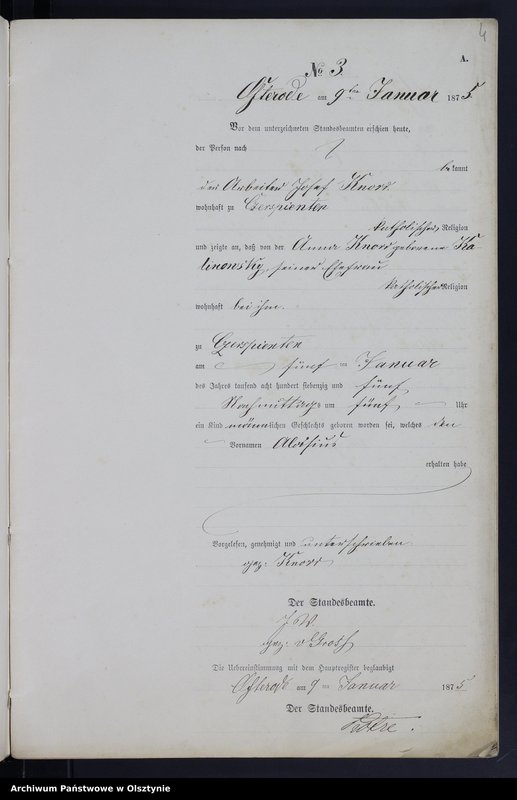 4
A.
No 3.
Osterode am 9ten Januar 1875
Vor dem unterzeichneten Standesbeamten erschien heute,
der Person nach
bekannt
der Arbeiter Josef Knorr
wohnhaft zu Czerpienten
katholischer Religion
und zeigte an, daß von der Anna Knorr geborene Ka-
linowsky, seiner Ehefrau
katholischer Religion
wohnhaft bei ihm.
zu Czerpienten
am fünf ten Januar
des Jahres tausend acht hundert siebenzig und fünf
Nachmittags um fünf Uhr
ein Kind männlichen Geschlechts geboren worden sei, welches den
Vornamen Aloisius
erhalten habe
Vorgelesen, genehmigt und unterschrieben
gez. Knorr
Der Standesbeamte.
J. V.
gez.
Die Uebereinstimmung mit dem Hauptregister beglaubigt
Osterode am 9 ten Januar 1875
Der Standesbeamte.
Archiwum Państwowe w Olsztynie